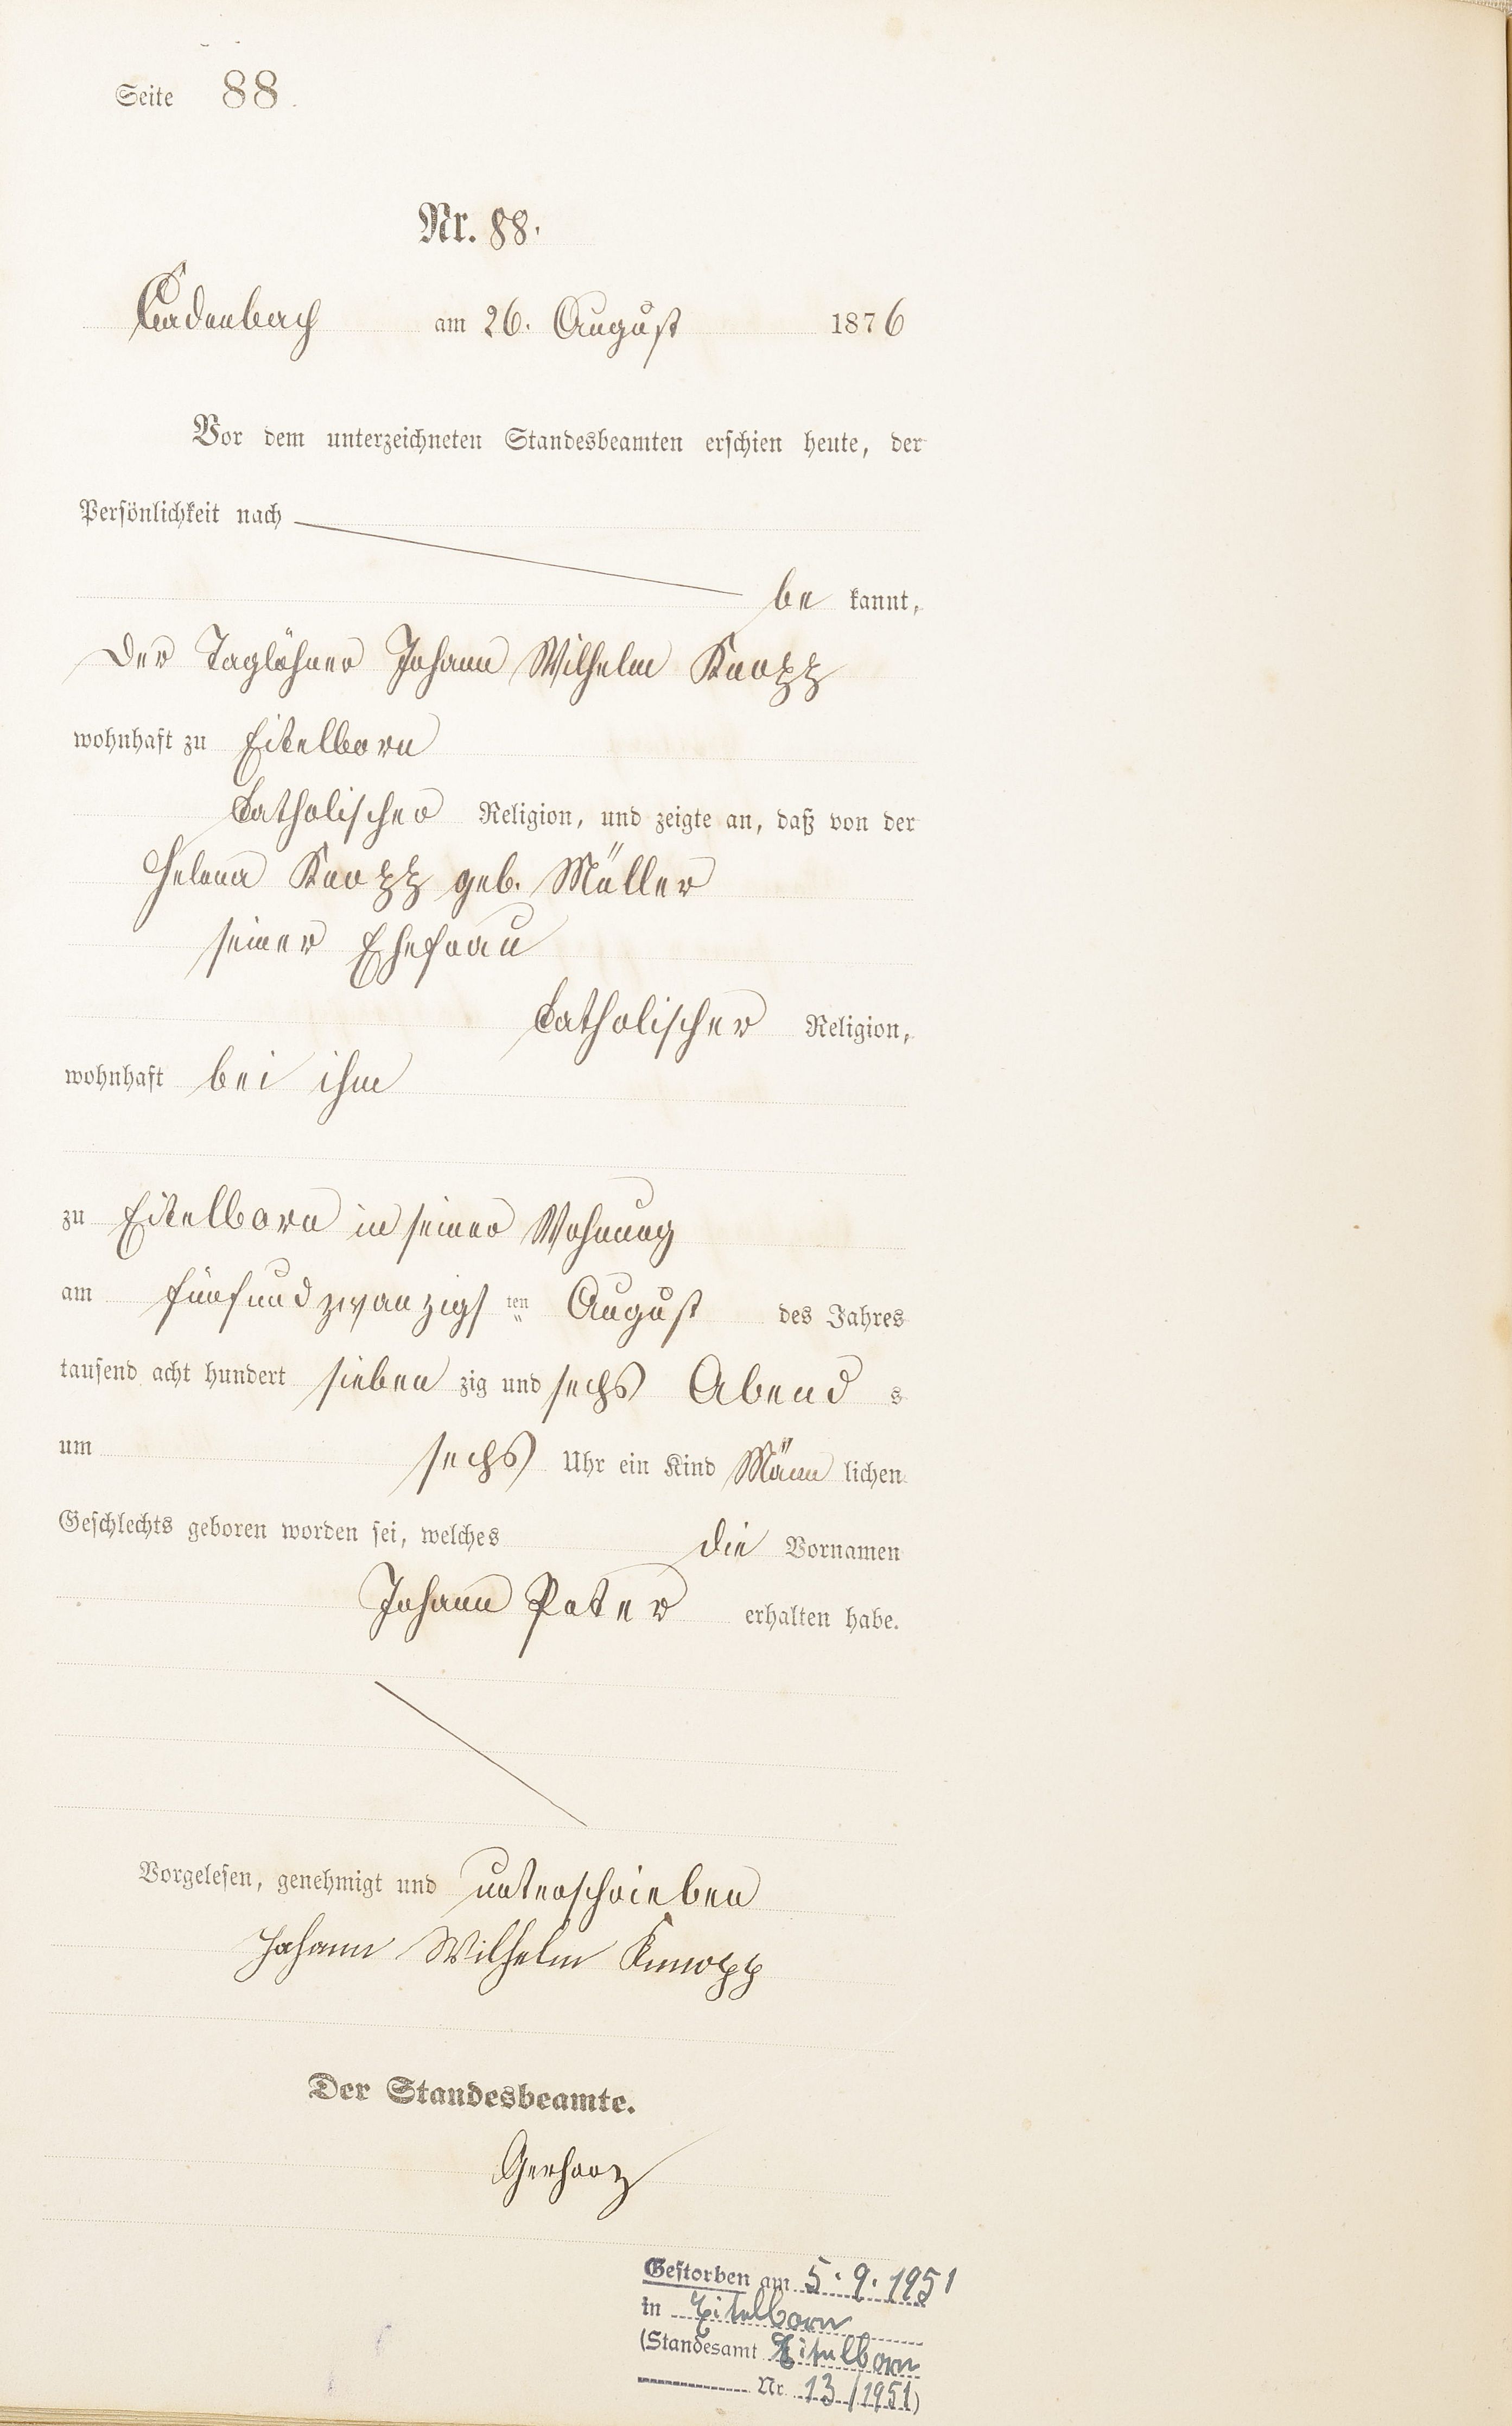 Seite 88.
Nr. 88.
Cadenbach am 26. August 1876
Vor dem unterzeichneten Standesbeamten erschien heute, der
Persönlichkeit nach
be kannt,
Der Taglöhner Johann Wilhelm Knopp
wohnhaft zu Eitelborn
Catholischer Religion, und zeigte an, daß von der
Helena Knopp geb. Müller
seiner Ehefrau
Catholischer Religion,
wohnhaft bei ihm
zu Eitelborn in seiner Wohnung
am fünfundzwanzigs ten August des Jahres
tausend acht hundert sieben zig und sechs Abend s
um sechs Uhr ein Kind Männ lichen
Geschlechts geboren worden sei, welches die Vornamen
Johann Peter erhalten habe.
Vorgelesen, genehmigt und unterschrieben
Johann Wilhelm Knopp
Der Standesbeamte.
Gerharz
Gestorben am 5. 9. 1951
in Eitelborn
(Standesamt Eitelborn
Nr. 13/1951)